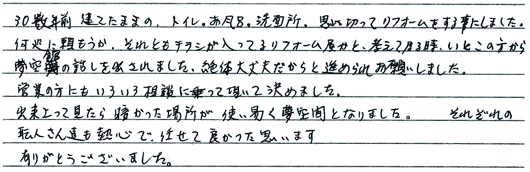 30数年前 建てたままの、トイレ。お風呂。洗面所。思い切ってリフォームをする事にしました。
何処に頼もうか、それともチラシが入ってるリフォーム屋かと、考えて居る時、いとこの方から
夢空館の話しを出されました、絶体大丈夫だからと進められお願いしました。
営業の方にもいろいろ相談に乗って頂いて決めました。
出来上って見たら暗かった場所が使い易く夢空間となりました。 それぞれの
職人さん達も熱心で、任せて良かった思います
ありがとうございました。